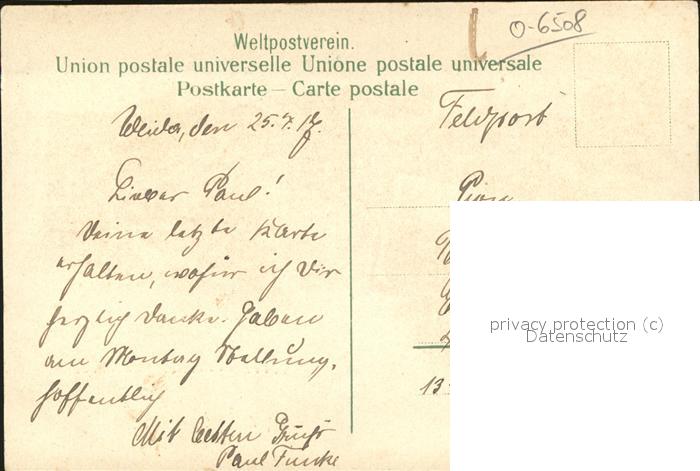 O-6508
Weltpostverein.
Union postale universelle Unione postale universale
Postkarte – Carte postale
Weida, den 25.7.17.
Lieber Paul!
Deine letzte Karte
erhalten, wofür ich Dir
herzlich danke. Haben
am Montag Stellung,
hoffentlich
Mit besten Gruß
Paul Funke
Feldpost
Pion
13
privacy protection (c)
Datenschutz